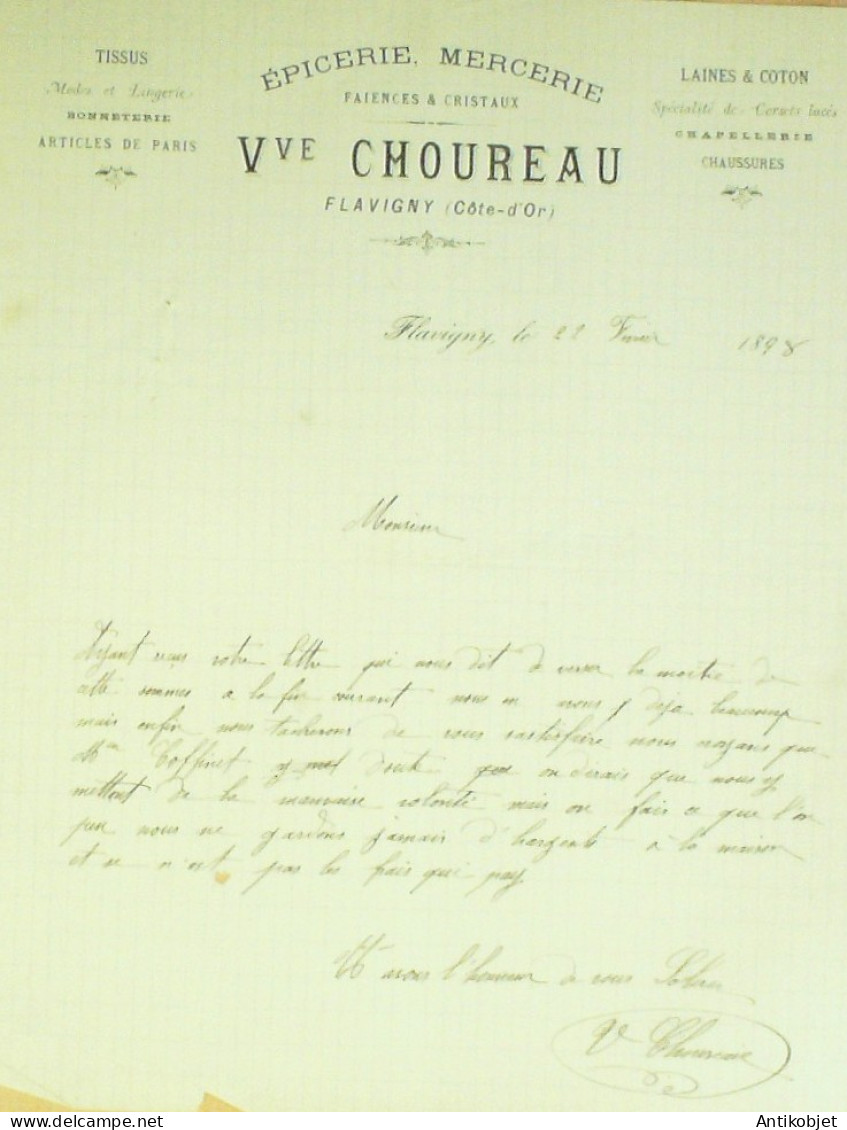 TISSUS
Modes et Lingerie
BONNETERIE
ARTICLES DE PARIS
ÉPICERIE, MERCERIE
FAIENCES & CRISTAUX
VVE CHOUREAU
FLAVIGNY (Côte-d'Or)
LAINES & COTON
Spécialité de Corsets lacés
CHAPELLERIE
CHAUSSURES
Flavigny, le 22 1898
Monsieur
Ayant reçus votre lettre qui nous dit de verser la moitié de
cette sommes a la fin courant nous en avons déja beaucoup
mais enfin nous tacherons de vous sastisfaire nous voyons que
Mr Coffinet doute on dirais que nous y
mettont de la mauvaise volonté mais on fais ce que l'on
peu nous ne gardons jamais d'hargents a la maison
et ce n'est pas les frais qui pay
Mr avons l'honneur de vous Saluer
V Choureau
Antikobjet
www.delcampe.net